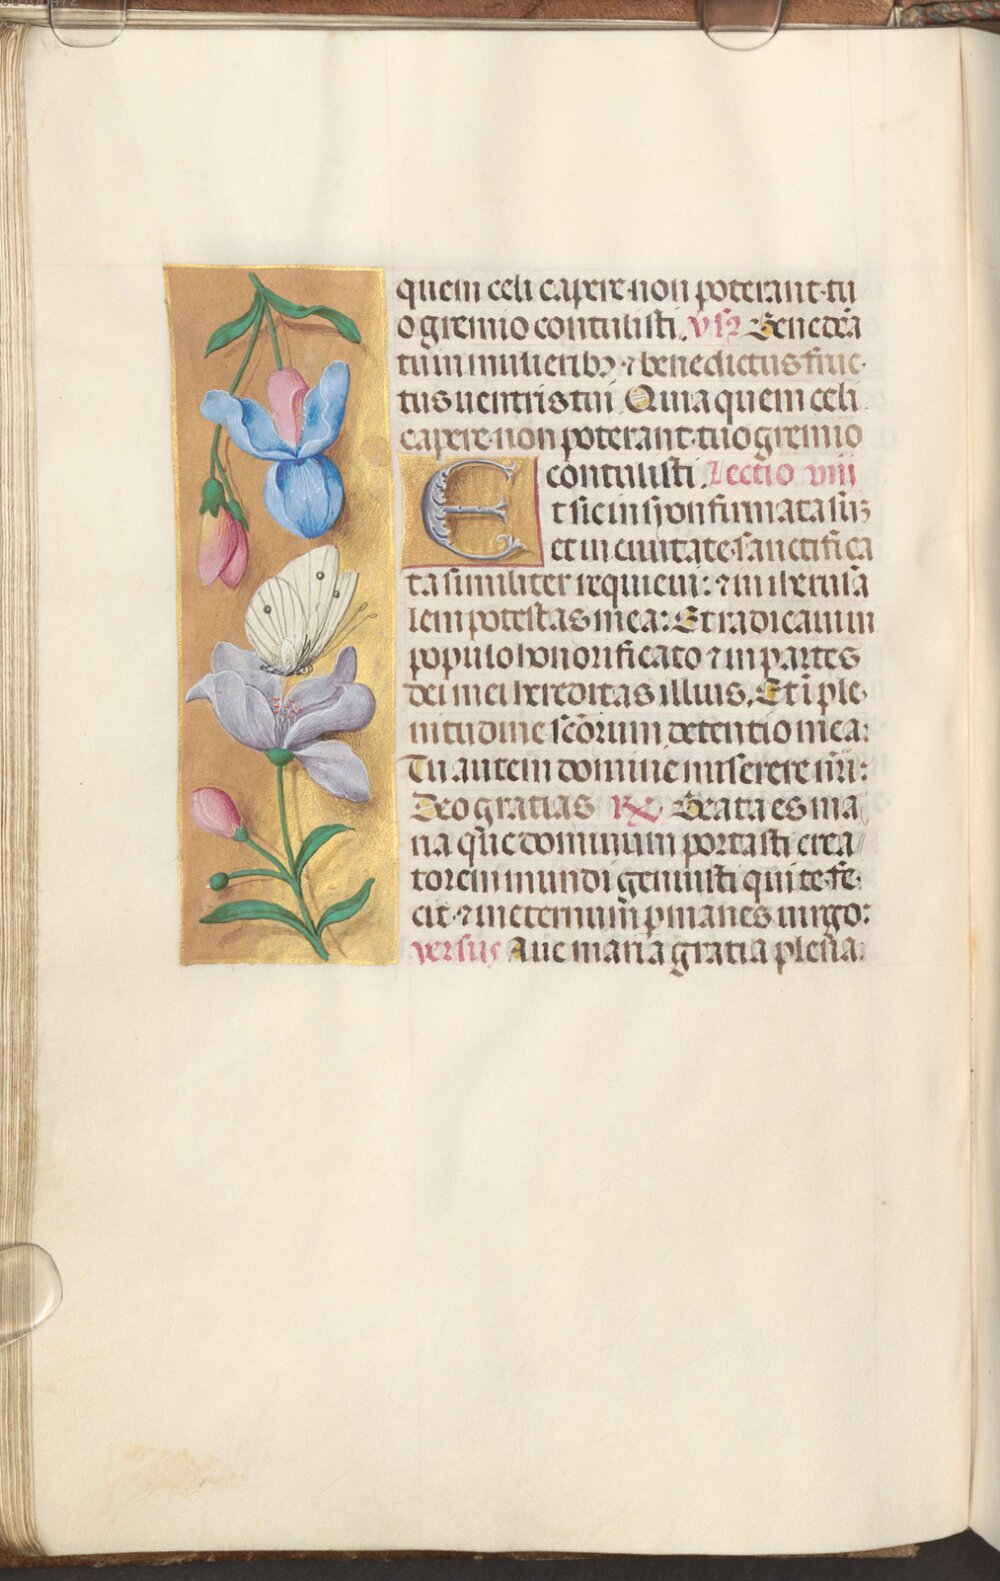 quem celi capere non poterant tu
o gremio contulisti. vsꝫ Benedcā
tu in mulieribꝫ ⁊ benedictus fruc
tus uentris tui. Quia quem celi
capere non poterant tuo gremio
contulisti. Lectio viii
Et sic in syon firmata sūꝫ
et in ciuitate sanctifica
ta similiter requieui: ⁊ in iherusā
lem potestas mea: Et radicaui in
populo honorificato ⁊ in partes
dei mei hereditas illius. Et ī ple
nitudine scōrum detentio mea:
Tu autem domine miserere nr̄i:
Deo gratias R Beata es ma
ria que dominum portasti crea
torem mundi genuisti qui te fe
cit ⁊ in eternum pmanes uirgo:
versus Aue maria gratia plena.